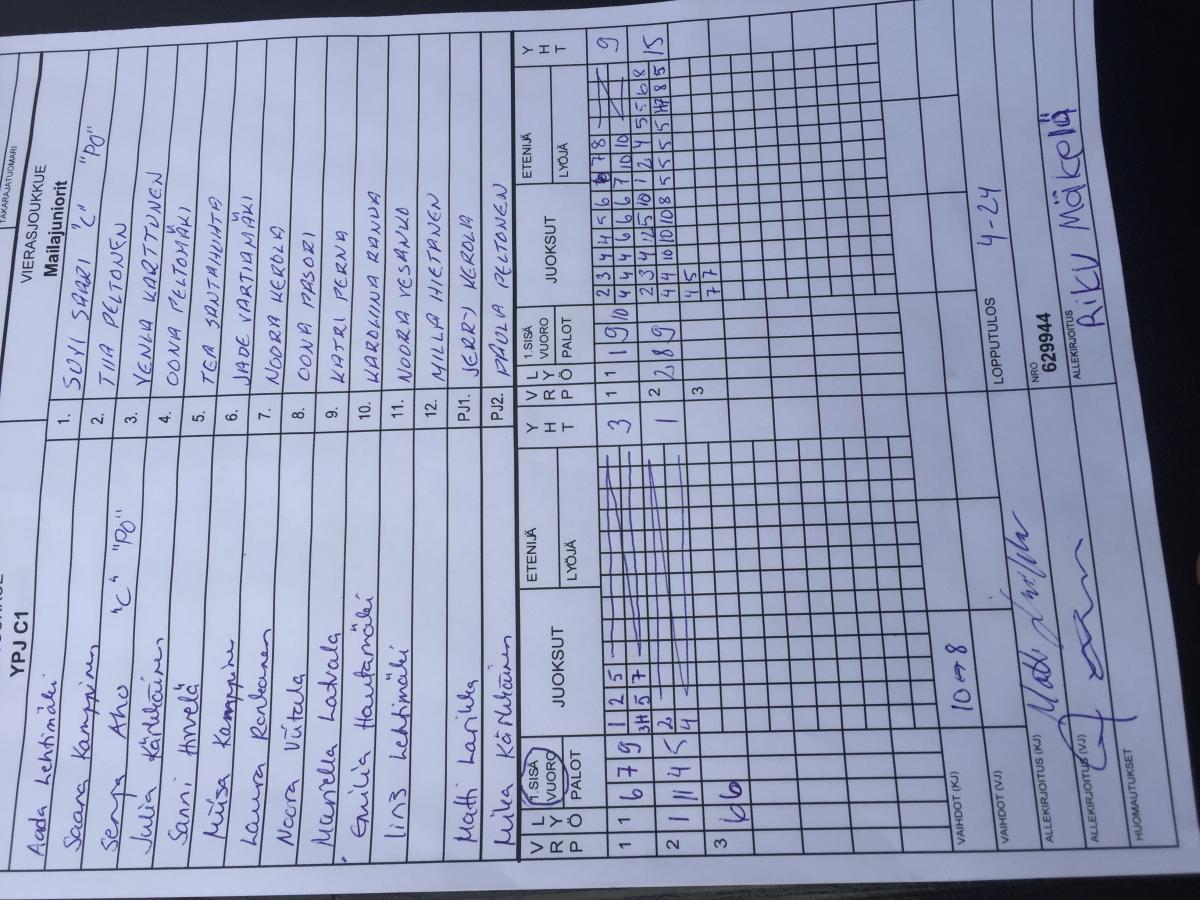 TAKARAJATUOMARI
VIERASJOUKKUE
YPJ C1
Mailajuniorit
Aada Lehtimäki
1. SUVI SAARI "C" "PO"
Saara Kamppinen
2. TIIA PELTONEN
Senja Aho "C" "PO"
3. VENLA KARTTUNEN
Julia Kärkkäinen
4. OONA PELTOMÄKI
Sanni Hirvelä
5. TEA SANTAHUHTA
Miisa Kamppinen
6. JADE VARTIAMÄKI
Laura Ronkanen
7. NOORA KEROLA
Noora Viitala
8. OONA MASORI
Mariella Latvala
9. KATRI PERNA
Emilia Hautamäki
10. KAROLIINA RANUA
Iina Lehtimäki
11. NOORA VESANKO
12. MILLA HIETANEN
Matti Larikka
PJ1. JERRY KEROLA
Mika Kärkkäinen
PJ2. PAULA PELTONEN
V R P
L Y Ö
1. SISÄ VUORO
PALOT
JUOKSUT
ETENIJÄ
LYÖJÄ
Y H T
V R P
L Y Ö
1. SISÄ VUORO
PALOT
JUOKSUT
ETENIJÄ
LYÖJÄ
Y H T
1 1 6 7 9 1 2 5 3
3H 5 7
1 1 1 9 10 2 3 4 4 5 6 6 7 8 9
4 4 4 6 6 6 7 10 10
2 1 11 4 5 2 1
4
2 2 8 9 15
3 6 6
3 4 5
7 7
VAIHDOT (KJ) 10↔8
VAIHDOT (VJ)
LOPPUTULOS 4-24
ALLEKIRJOITUS (KJ)
NRO 629944
ALLEKIRJOITUS (VJ)
ALLEKIRJOITUS RIKU MÄKELÄ
HUOMAUTUKSET